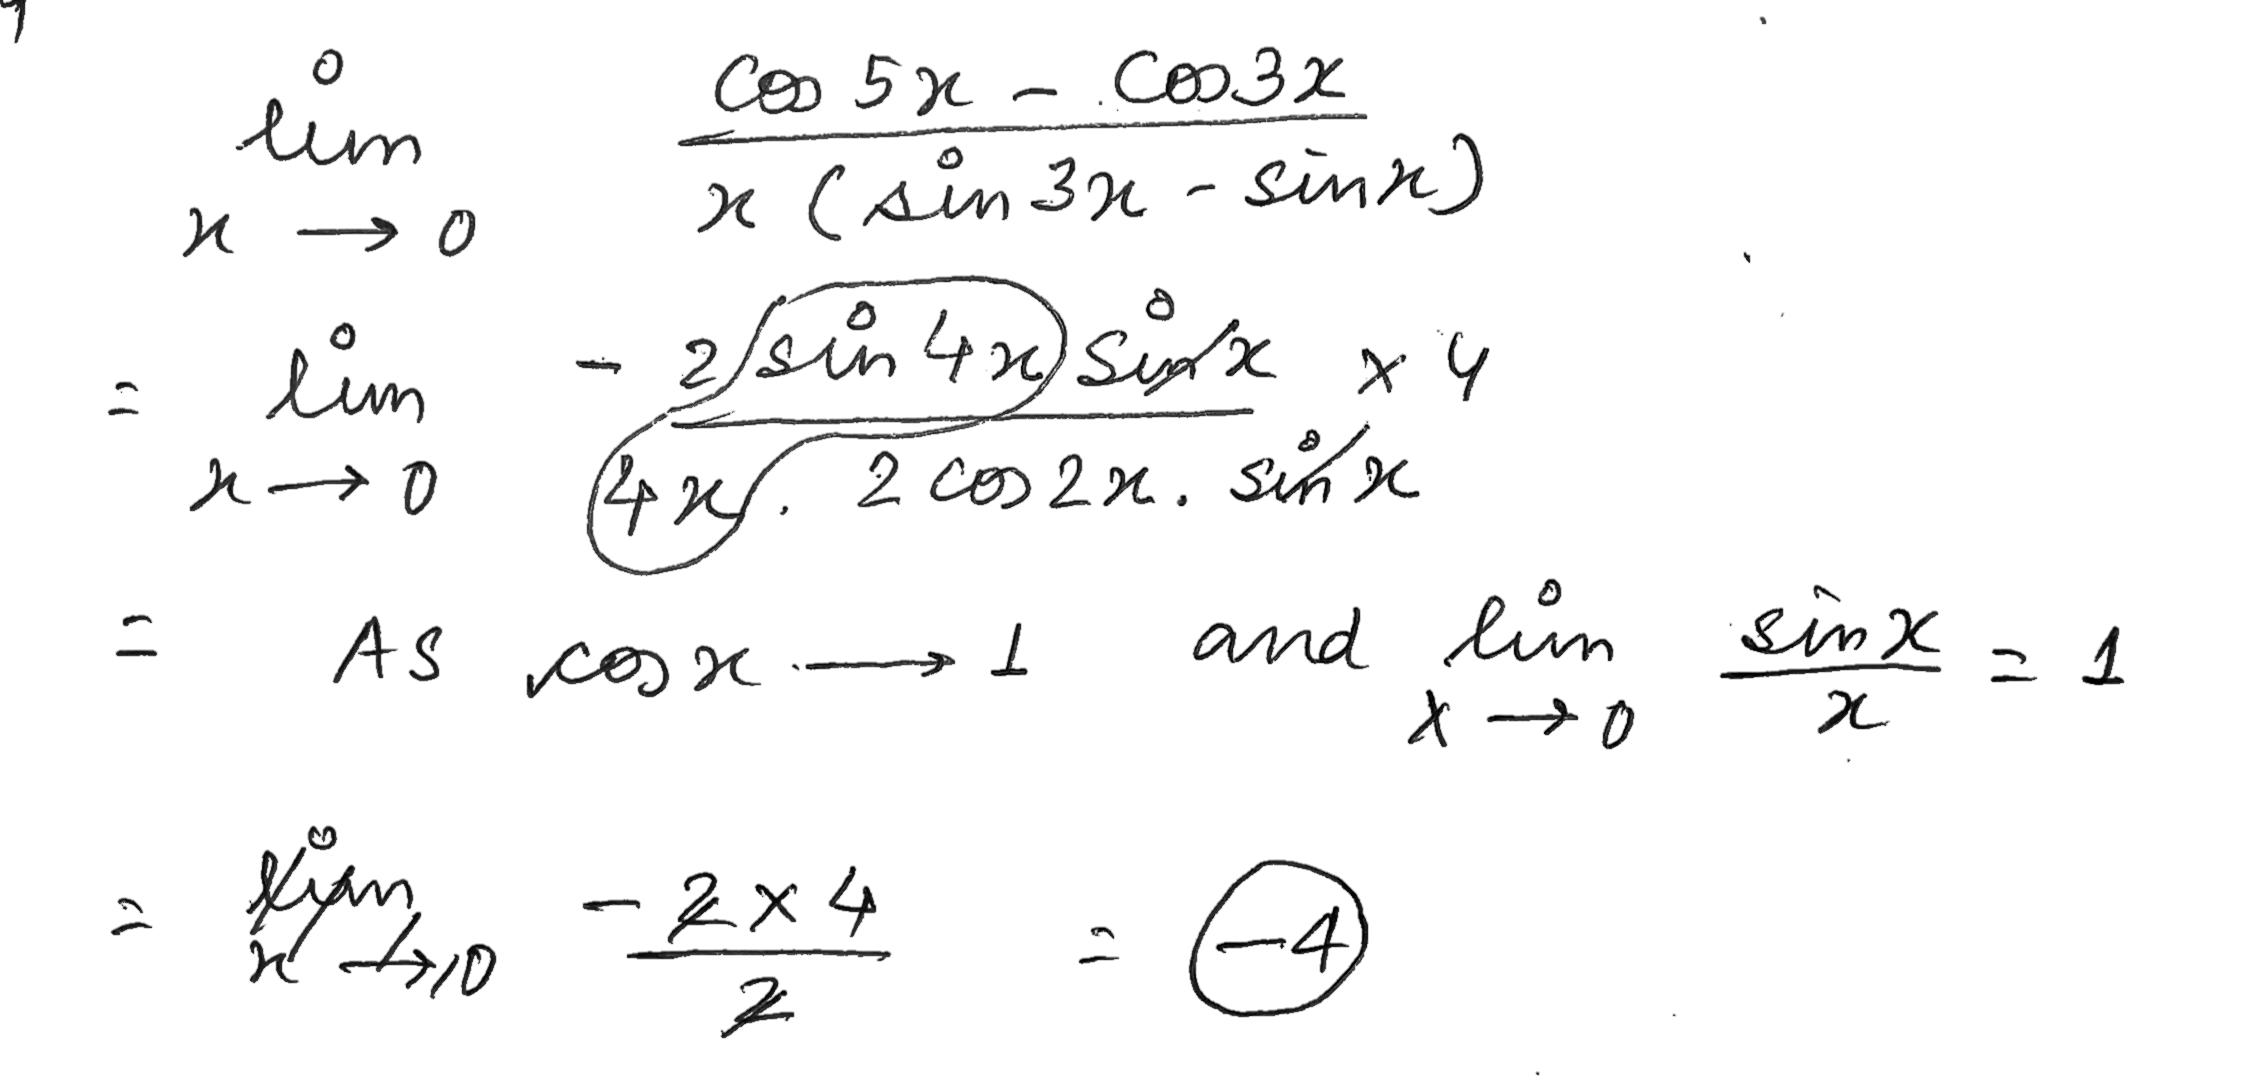 lim x → 0 (cos 5x - cos 3x) / (x (sin 3x - sin x))
= lim x → 0 (- 2 sin 4x sin x × 4) / (4x . 2 cos 2x . sin x)
= As cos x → 1 and lim x → 0 sin x / x = 1
= lim x → 0 (- 2 × 4) / 2 = -4